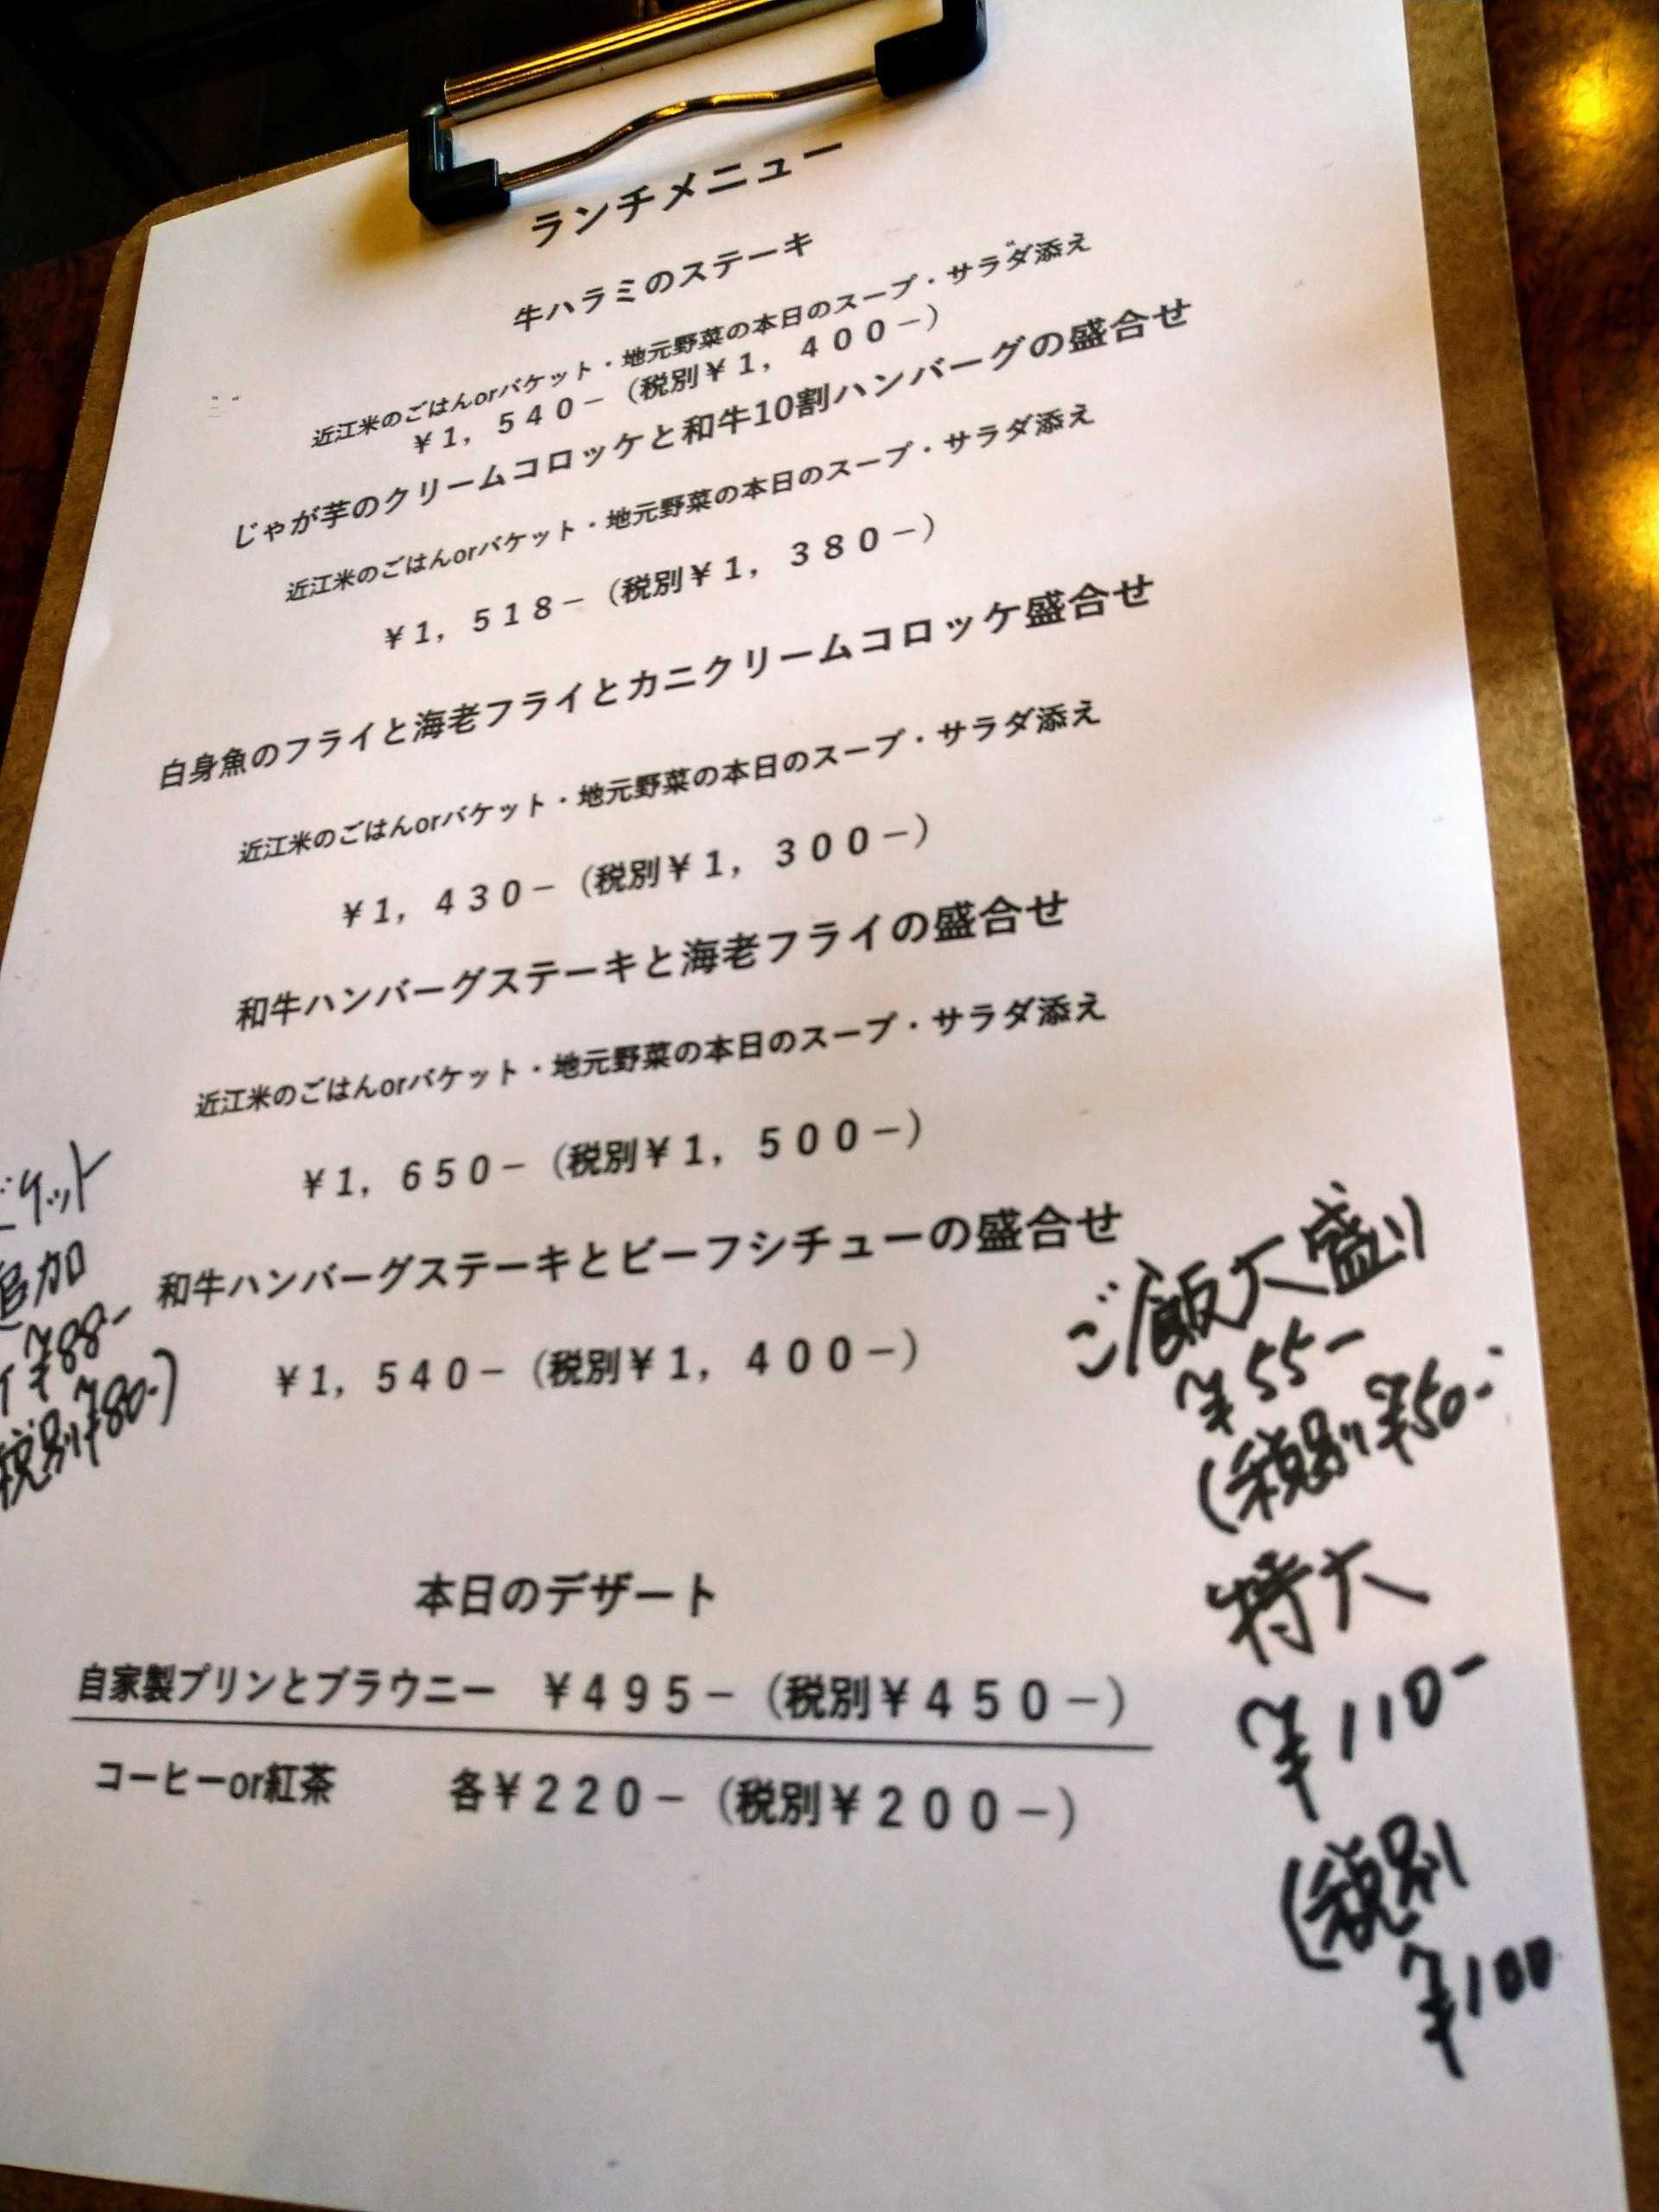 ランチメニュー
牛ハラミのステーキ
近江米のごはんorバケット・地元野菜の本日のスープ・サラダ添え
￥1，５４０－（税別￥１，４００－）
じゃが芋のクリームコロッケと和牛10割ハンバーグの盛合せ
近江米のごはんorバケット・地元野菜の本日のスープ・サラダ添え
￥1，５１８－（税別￥１，３８０－）
白身魚のフライと海老フライとカニクリームコロッケ盛合せ
近江米のごはんorバケット・地元野菜の本日のスープ・サラダ添え
￥1，４３０－（税別￥１，３００－）
和牛ハンバーグステーキと海老フライの盛合せ
近江米のごはんorバケット・地元野菜の本日のスープ・サラダ添え
￥1，６５０－（税別￥１，５００－）
和牛ハンバーグステーキとビーフシチューの盛合せ
￥1，５４０－（税別￥１，４００－）
ケット
追加
￥88-
税別￥80-)
ご飯大盛り
￥55-
(税別￥50-
特大
￥110-
(税別
￥100
本日のデザート
自家製プリンとブラウニー　￥４９５－（税別￥４５０－）
コーヒーor紅茶　各￥２２０－（税別￥２００－）